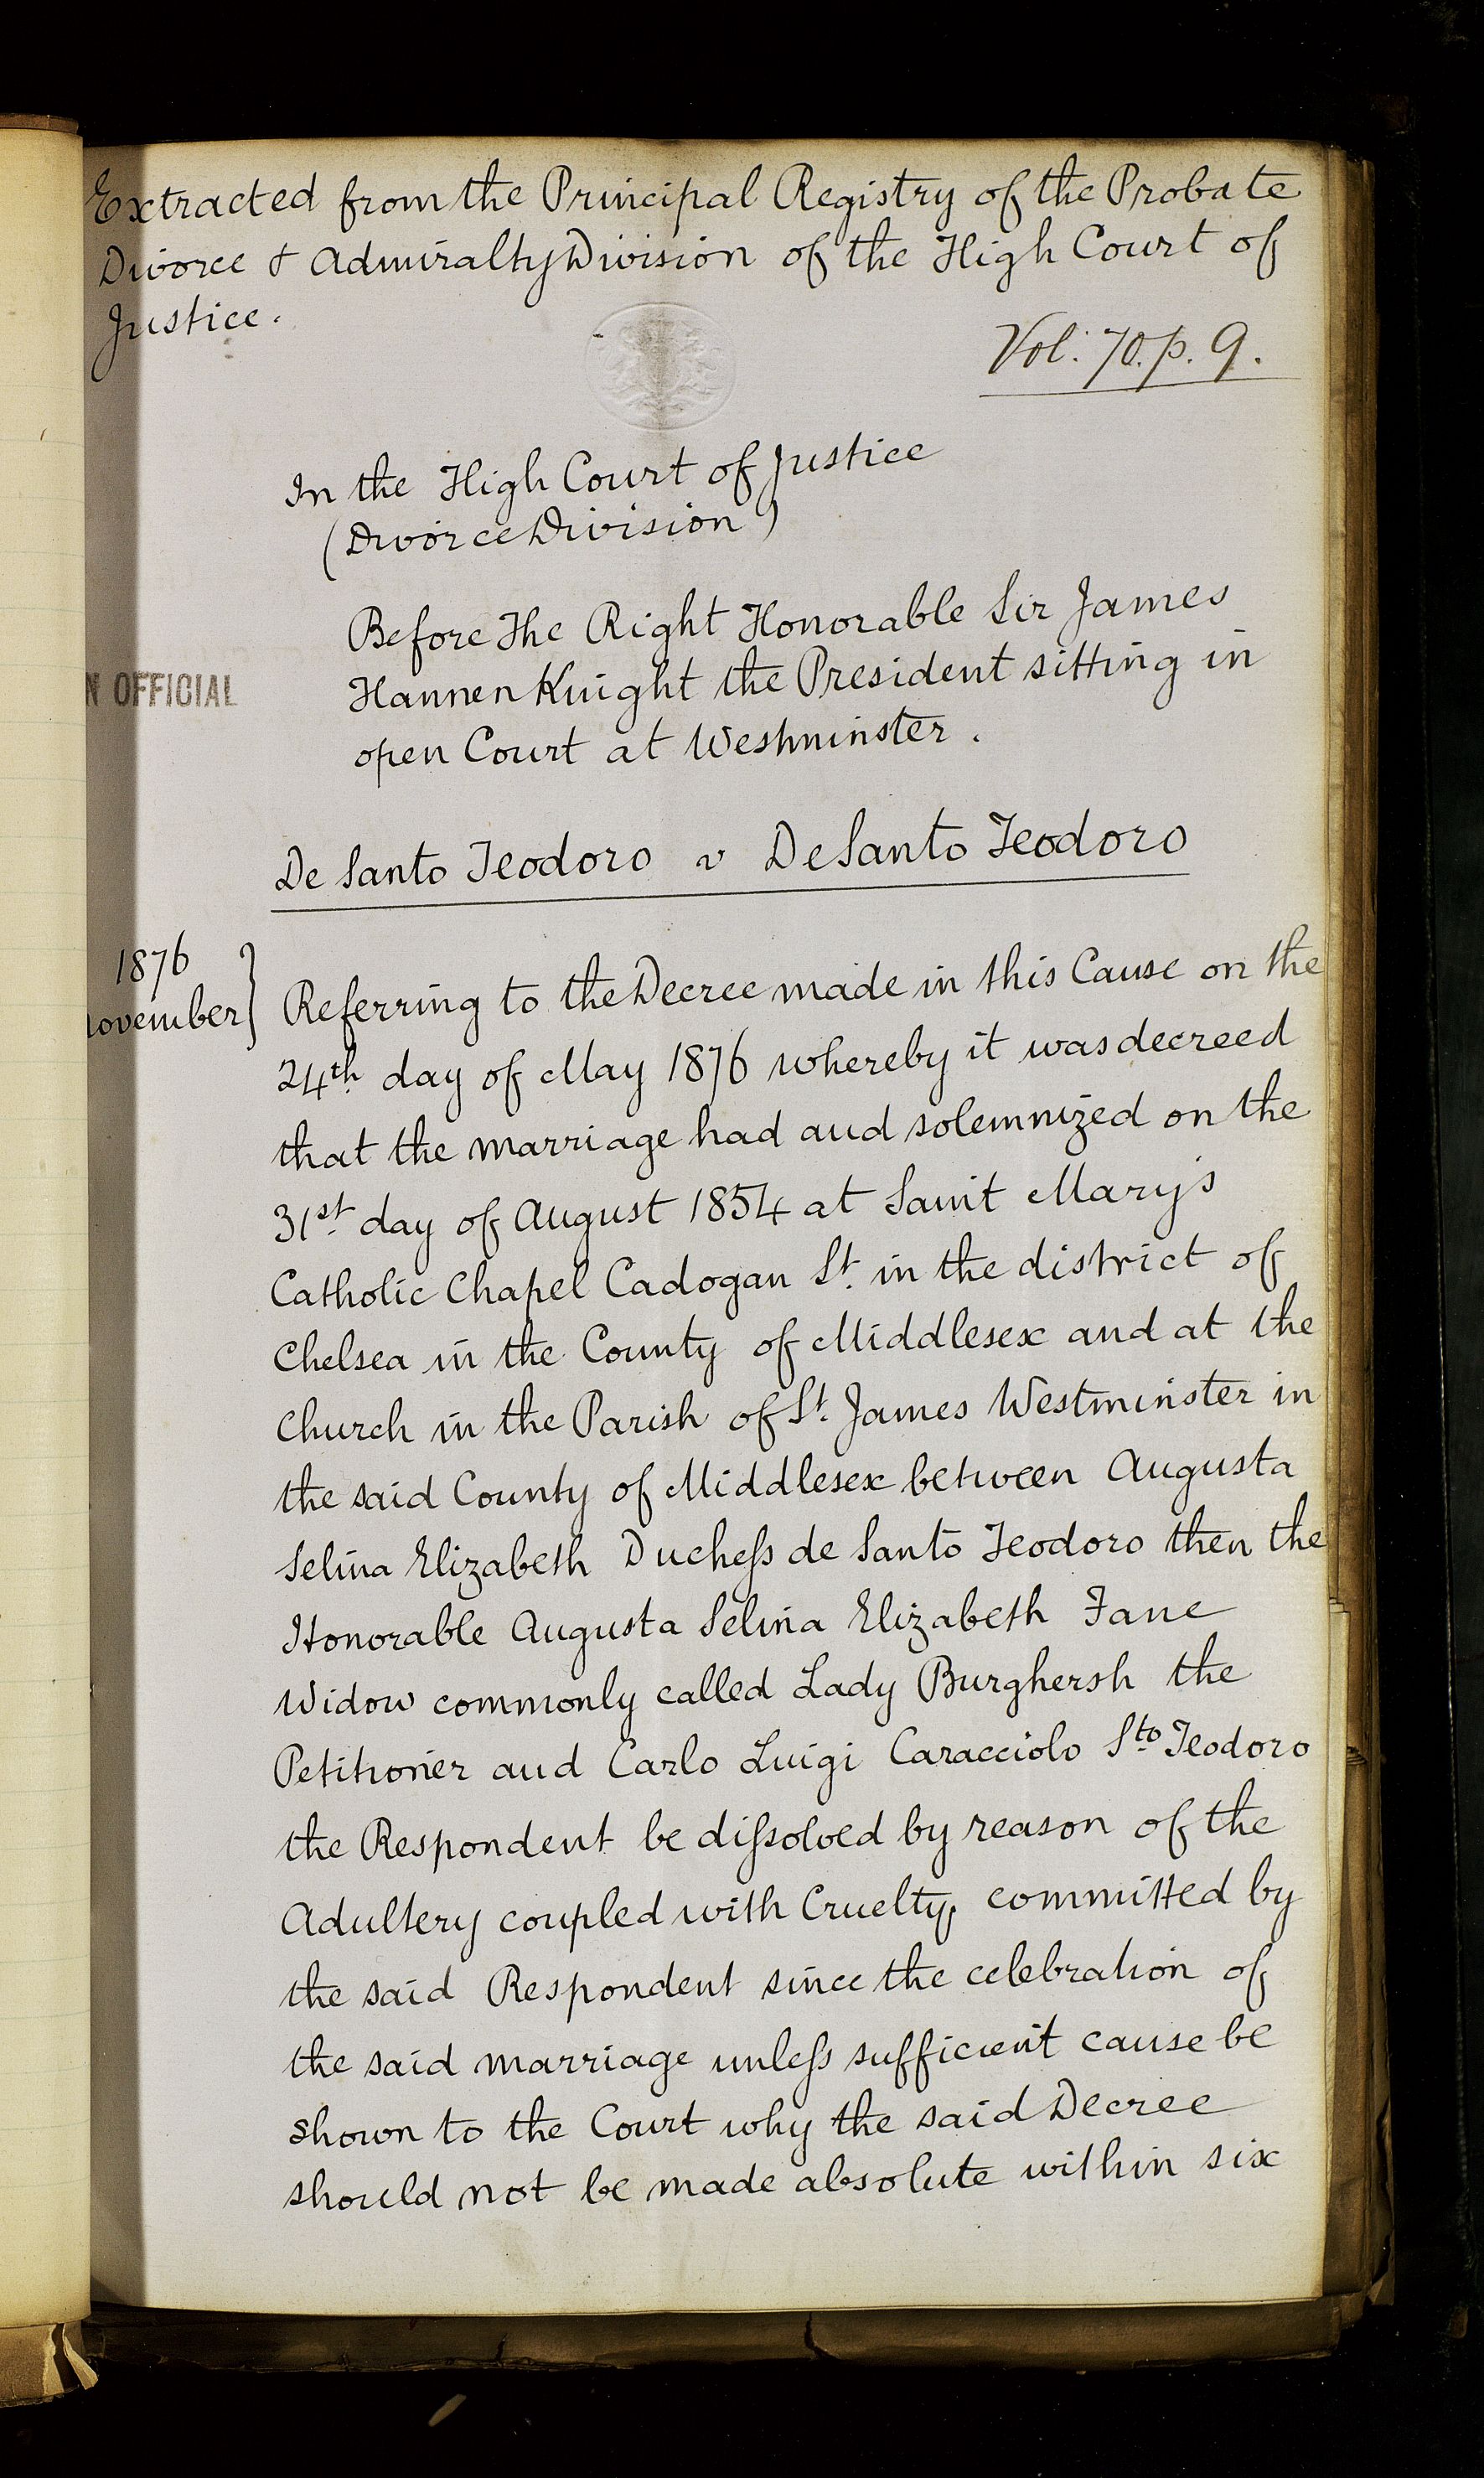 Extracted from the Principal Registry of the Probate
Divorce & Admiralty Division of the High Court of
Justice.
Vol: 70. p. 9.
In the High Court of Justice
(Divorce Division)
Before The Right Honorable Sir James
Hannen Knight the President sitting in
open Court at Westminster.
N OFFICIAL
De Santo Teodoro v De Santo Teodoro
1876
november}
Referring to the Decree made in this Cause on the
24th day of May 1876 whereby it was decreed
that the marriage had and solemnized on the
31st day of August 1854 at Saint Mary's
Catholic Chapel Cadogan St. in the district of
Chelsea in the County of Middlesex and at the
Church in the Parish of St. James Westminster in
the said County of Middlesex between Augusta
Selina Elizabeth Ducheſs de Santo Teodoro then the
Honorable Augusta Selina Elizabeth Fane
Widow commonly called Lady Burghersh the
Petitioner and Carlo Luigi Caracciolo Sto Teodoro
the Respondent be diſsolved by reason of the
Adultery coupled with Cruelty, committed by
the said Respondent since the celebration of
the said marriage unleſs sufficient cause be
shown to the Court why the said Decree
should not be made absolute within six